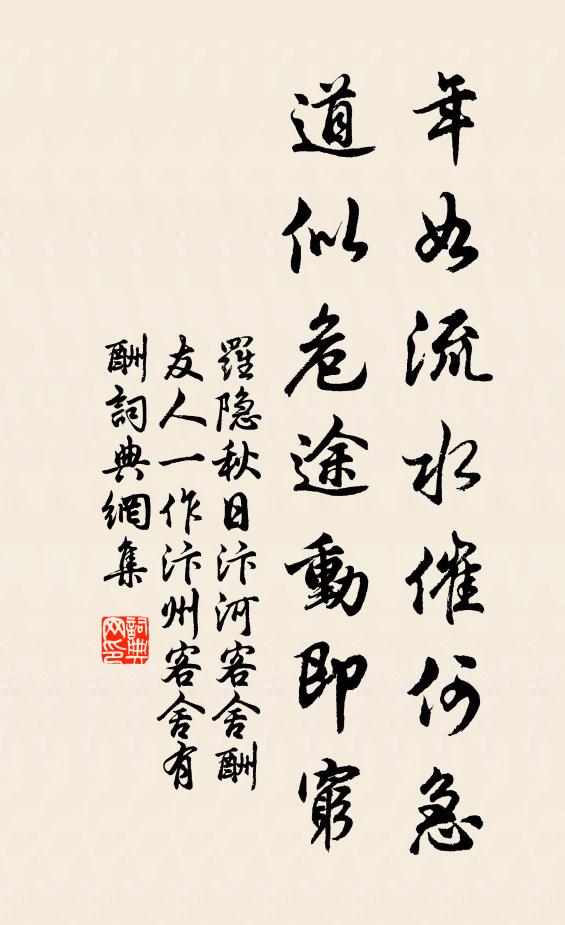 年如流水催何急
道似危途動即窮
羅隐秋日汴河客舍酬
友人一作汴州客舍有
酬詞典網集
詞典
网印